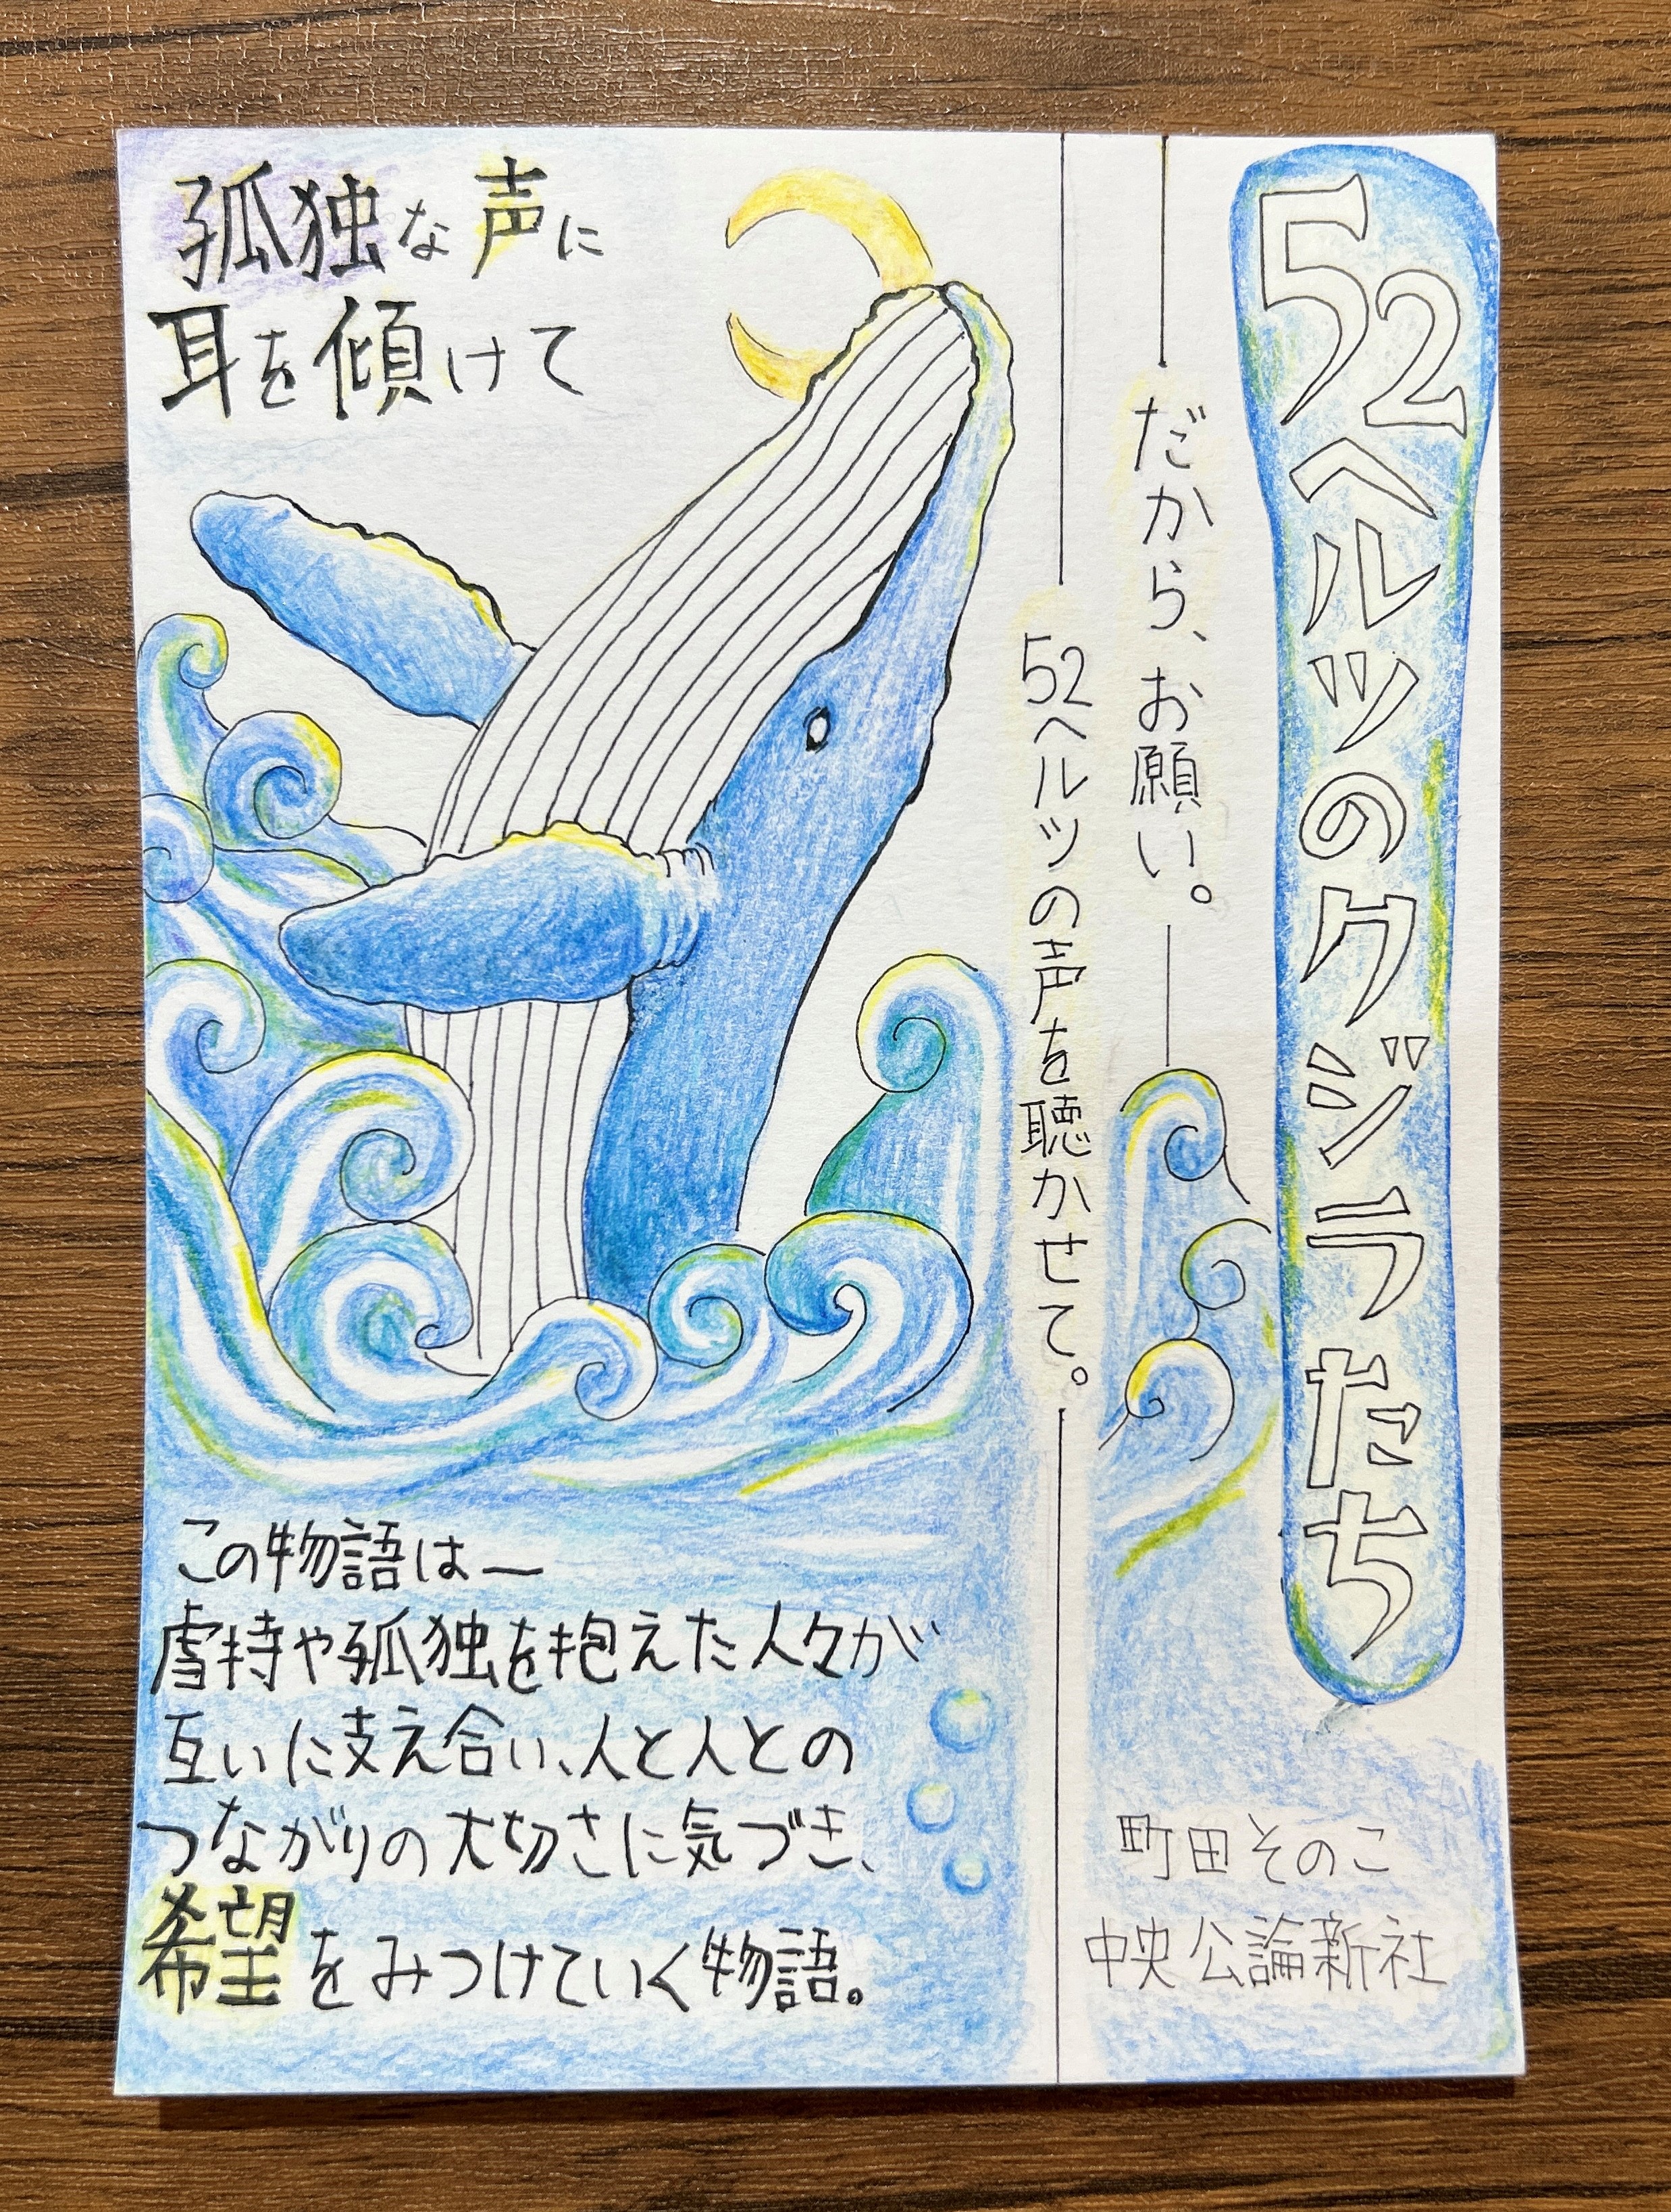 52ヘルツのクジラたち
だから、お願い。
52ヘルツの声を聴かせて。
孤独な声に
耳を傾けて
この物語は—
虐待や孤独を抱えた人々が
互いに支え合い、人と人との
つながりの大切さに気づき、
希望をみつけていく物語。
町田そのこ
中央公論新社